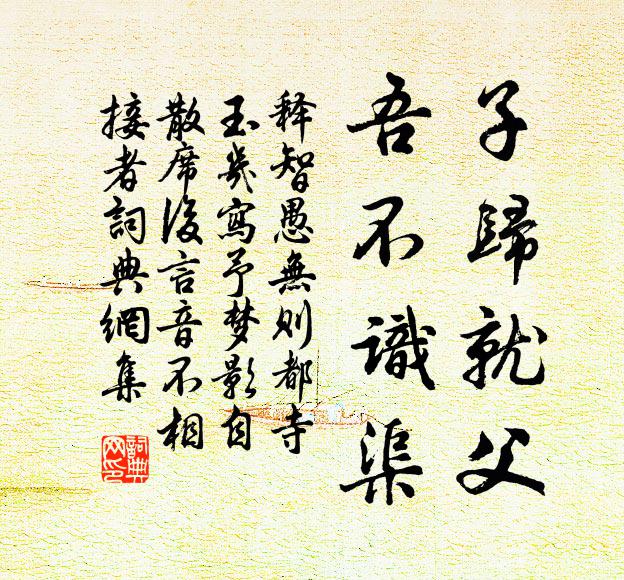 子歸就父
吾不識渠
释智愚無則都寺
玉幾寫予梦影自
散席後言音不相
接者詞典網集
詞典
网印